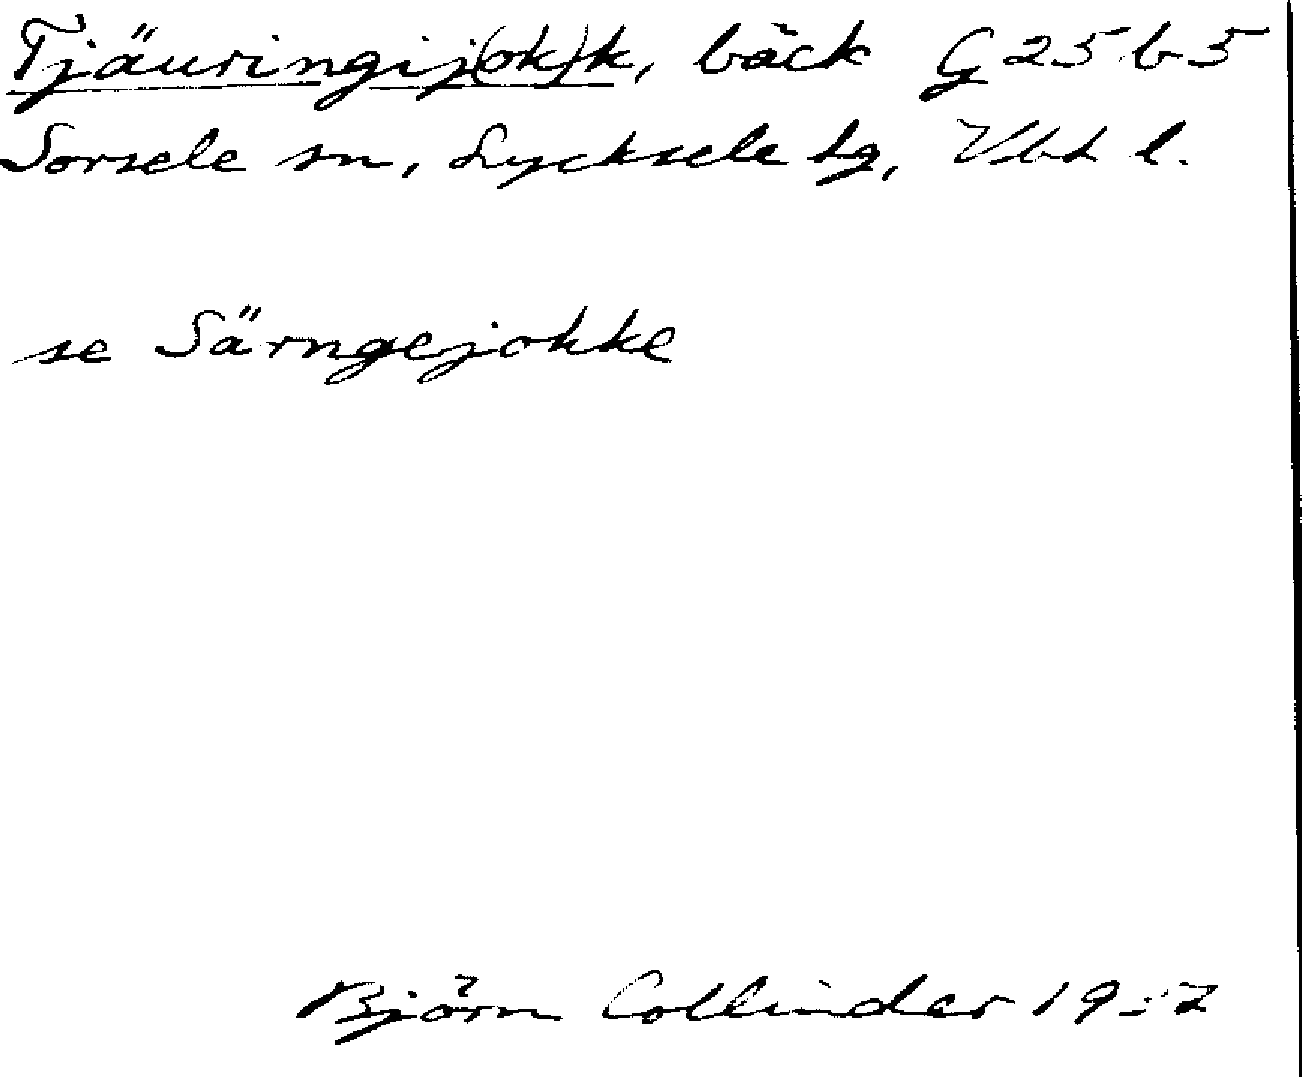 Tjäuringij(ok)k, bäck G 25 b 5
Sorsele sn, Lycksele lg, Vbt l.
se Särngejokke
Björn Collinder